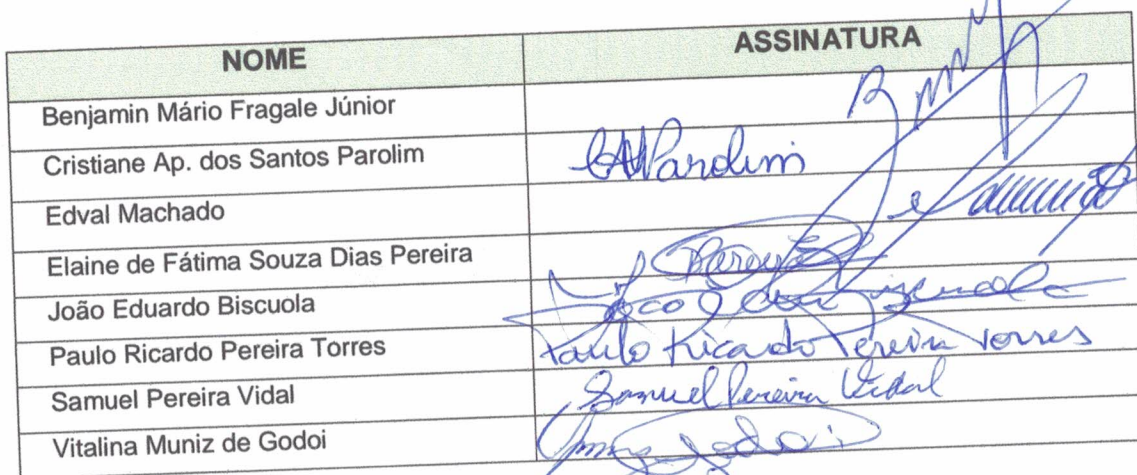 NOME ASSINATURA
Benjamin Mário Fragale Júnior
Cristiane Ap. dos Santos Parolim CAParolim
Edval Machado
Elaine de Fátima Souza Dias Pereira
João Eduardo Biscuola
Paulo Ricardo Pereira Torres Paulo Ricardo Pereira Torres
Samuel Pereira Vidal Samuel Pereira Vidal
Vitalina Muniz de Godoi